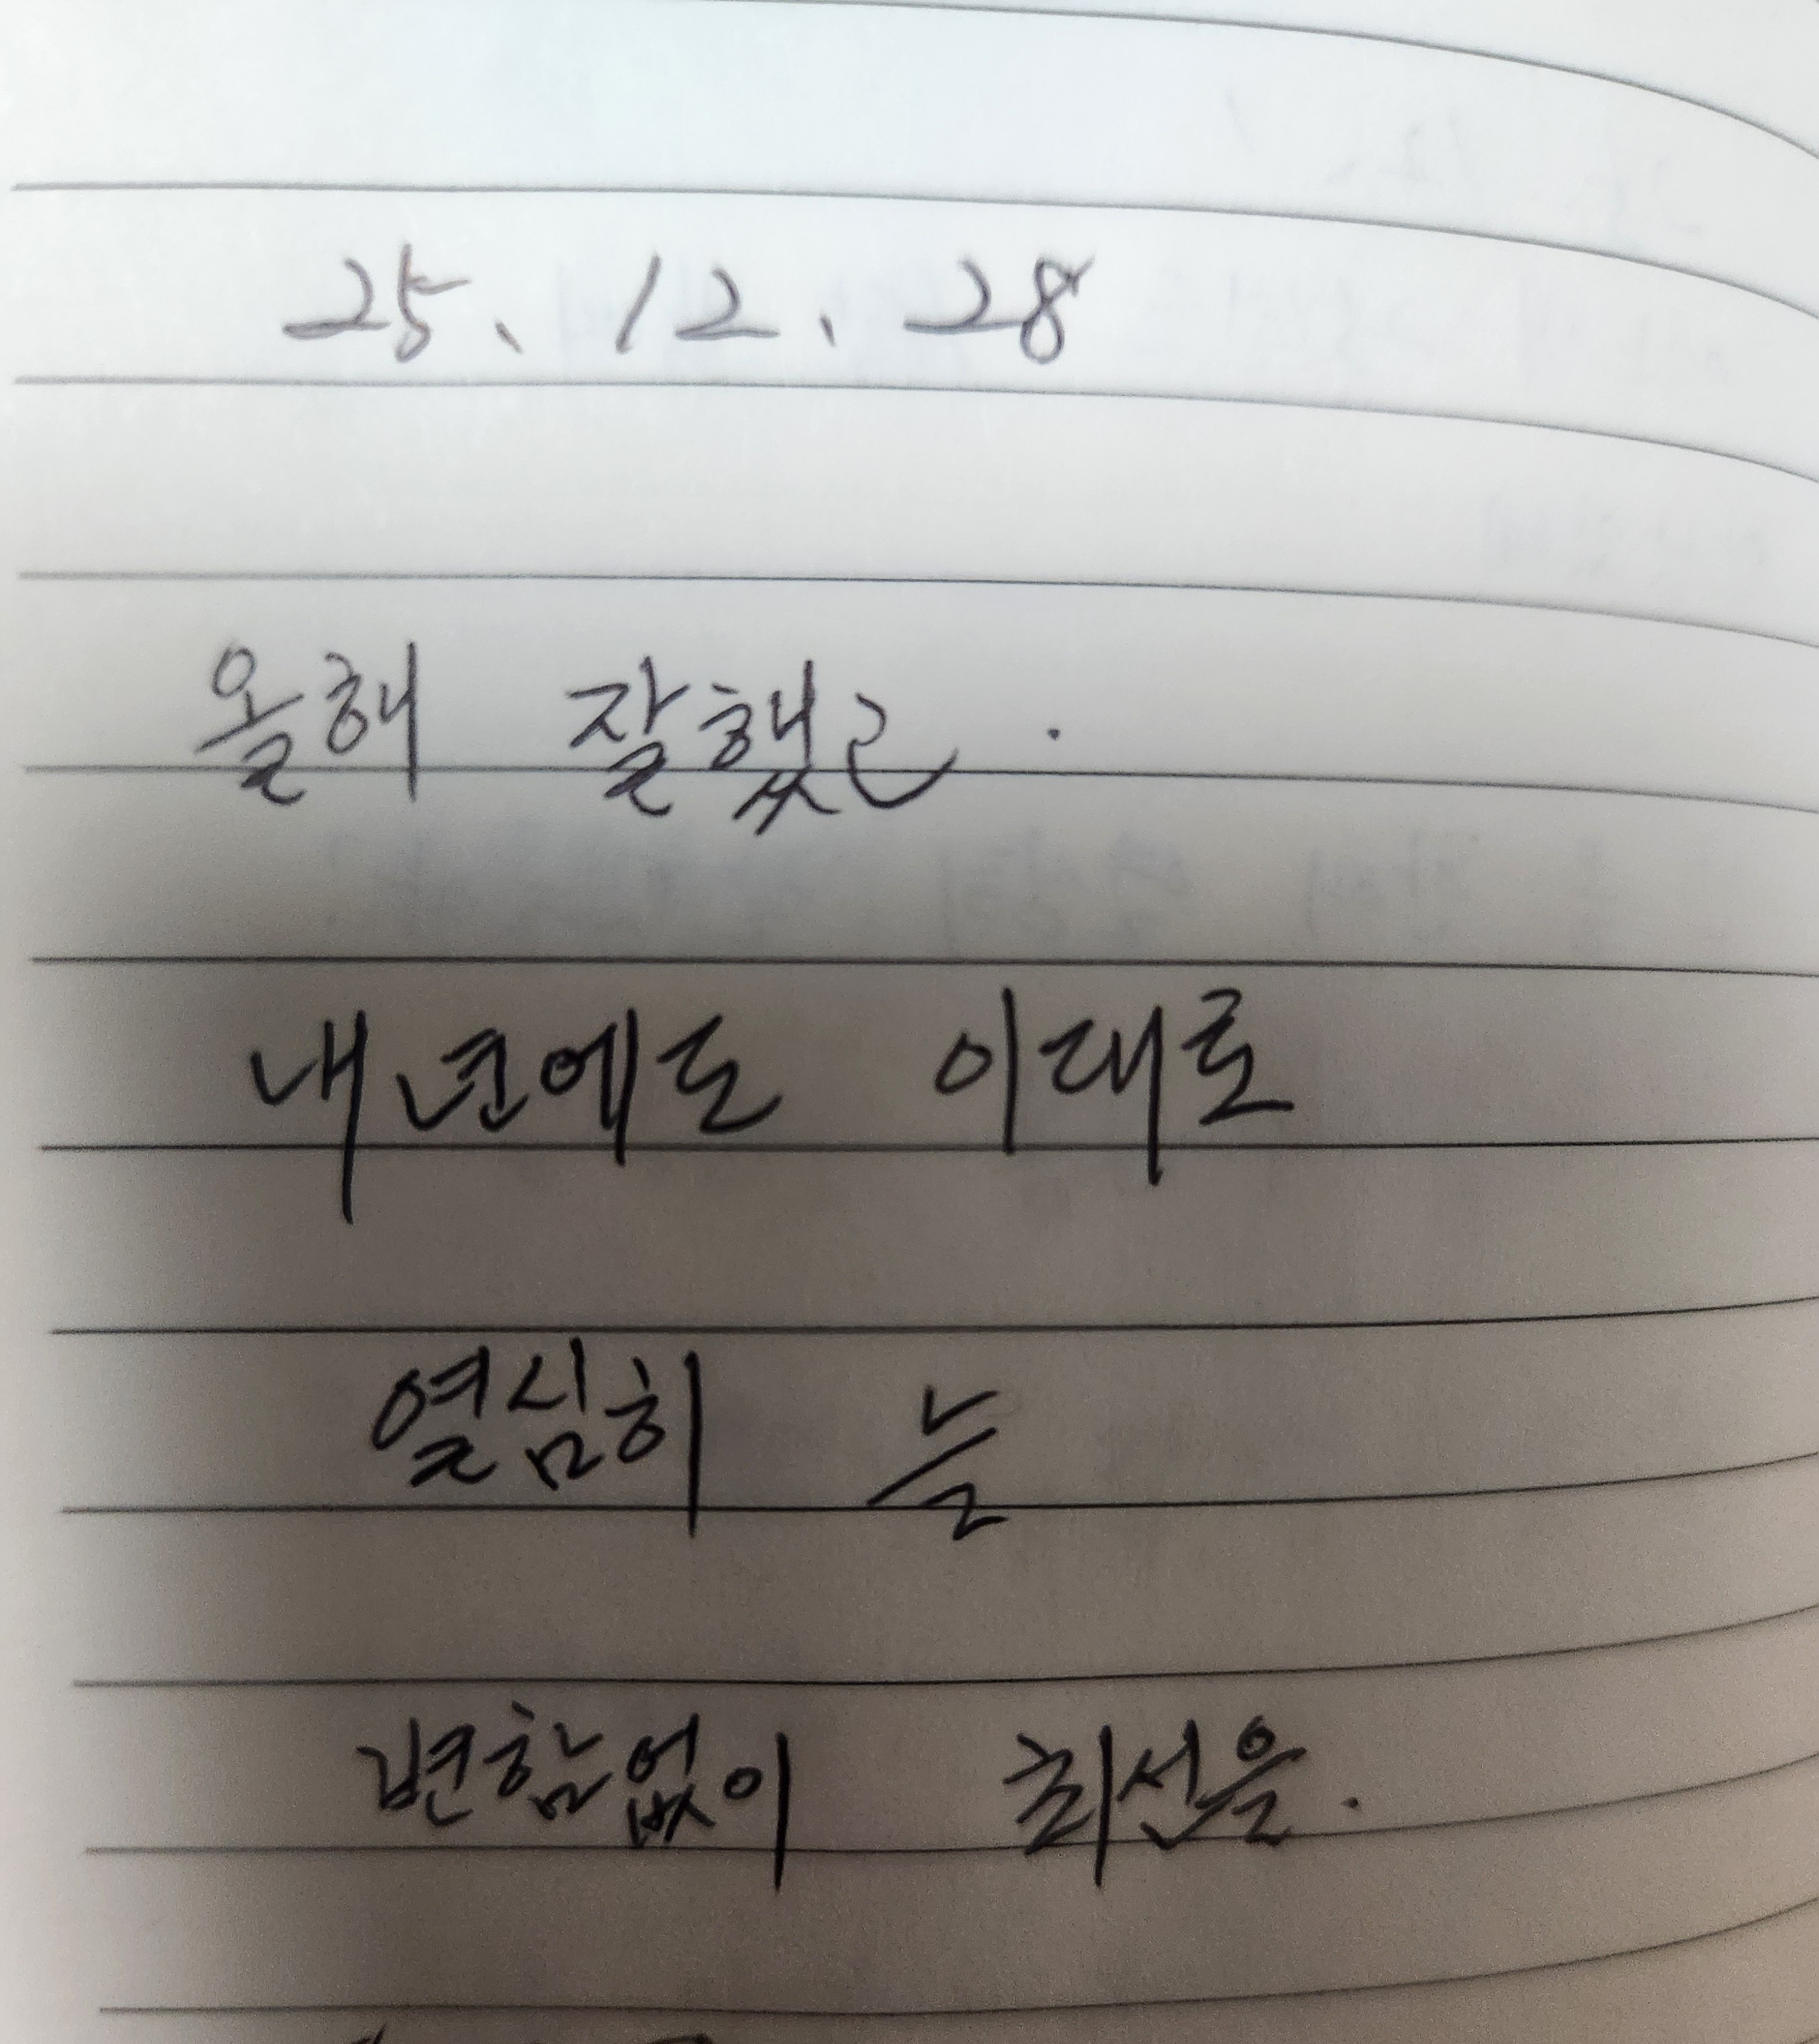 25. 12. 28
올해 잘했고.
내년에도 이대로
열심히 늘
변함없이 최선을.